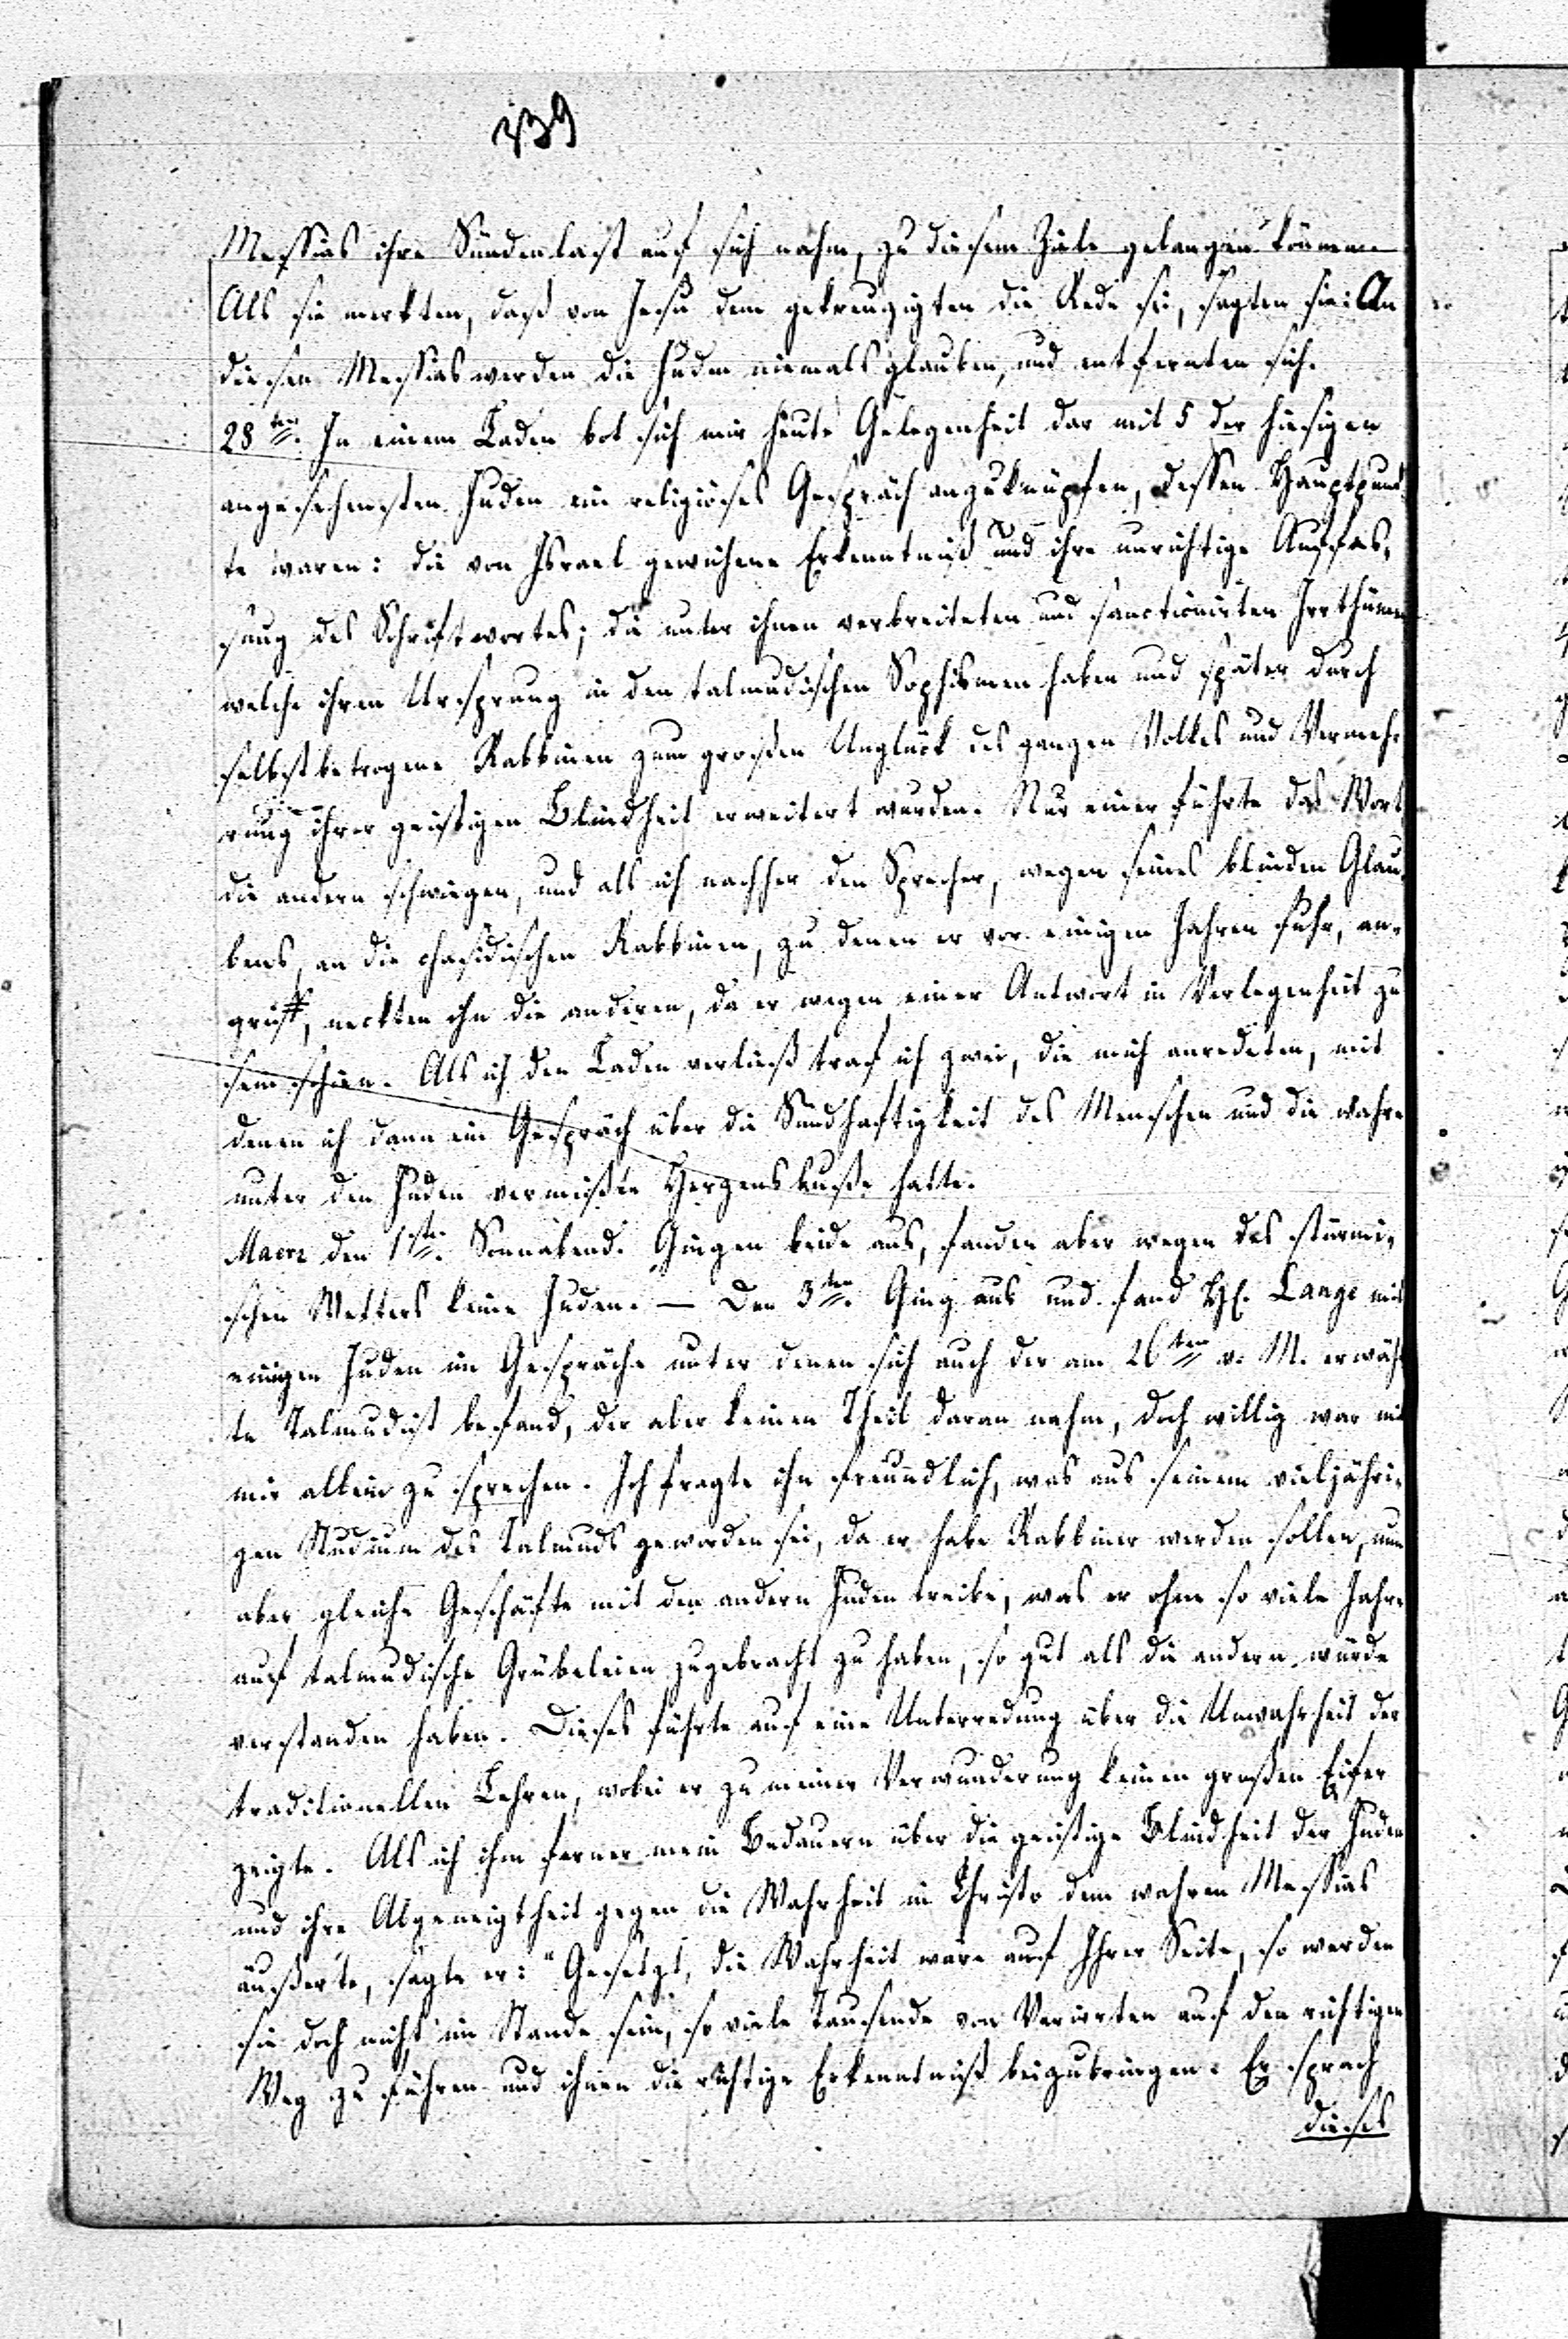 339
Messias ihre Sündenlast auf sich nahm, zu diesem Ziele gelangen können
Als sie merkten, daß von Jesu dem gekreuzigten die Rede sei, sagten sie: An
diesen Messias werden die Juden niemals glauben, und entfernten sich.
28ten. In einem Laden bot sich mir heute Gelegenheit dar mit 5 der hiesigen
angesehensten Juden ein religiöses Gespräch anzuknüpfen, dessen Hauptpunk-
te waren: die von Israel gewichene Erkenntniß und ihre unrichtige Auffas-
sung des Schriftwortes; die unter ihnen verbreiteten und sanctionirten Irrthümer
welche ihren Ursprung in den talmudischen Sophismen haben und später durch
selbstbetrogene Rabbinen zum großen Unglück des ganzen Volkes und Vermeh-
rung ihrer geistigen Blindheit erweitert wurden. Nur einer führte das Wort,
die andern schwiegen, und als ich nachher den Sprecher, wegen seines blinden Glau-
bens, an die chasidischen Rabbinen, zu denen er vor einigen Jahren fuhr, an-
griff, neckten ihn die anderen, da er wegen einer Antwort in Verlegenheit zu
sein schien. Als ich den Laden verließ traf ich zwei, die mich anredeten, mit
denen ich dann ein Gespräch über die Sündhaftigkeit des Menschen und die wahre
unter den Juden vermißte Herzensbuße hatte.
Maerz den 1sten. Sonnabend. Gingen beide aus, fanden aber wegen des stürmi-
schen Wetters keine Juden. — Den 3ten. Ging aus und fand H. Lange mit
einigen Juden im Gespräche unter denen sich auch der am 26ten v. M. erwähn
te Talmudist befand, der aber keinen Theil daran nahm, doch willig war mit
mir allein zu sprechen. Ich fragte ihn freundlich, was aus seinem vieljähri-
gen Studium des Talmuds geworden sei, da er habe Rabbiner werden sollen, nun
aber gleiche Geschäfte mit den andern Juden treibe, was er ohne so viele Jahre
auf talmudische Grübeleien zugebracht zu haben, so gut als die andern würde
verstanden haben. Dieses führte auf eine Unterredung über die Unwahrheit der
traditionellen Lehren, wobei er zu meiner Verwunderung keinen großen Eifer
zeigte. Als ich ihm ferner mein Bedauern über die geistige Blindheit der Juden
und ihre Abgeneigtheit gegen die Wahrheit in Christo dem wahren Messias
äußerte, sagte er: "Gesetzt, die Wahrheit wäre auf Ihrer Seite, so werden
sie doch nicht im Stande sein, so viele Tausende von Verirrten auf den richtigen
Weg zu führen und ihnen die richtige Erkenntniß beizubringen. Er sprach
dieses